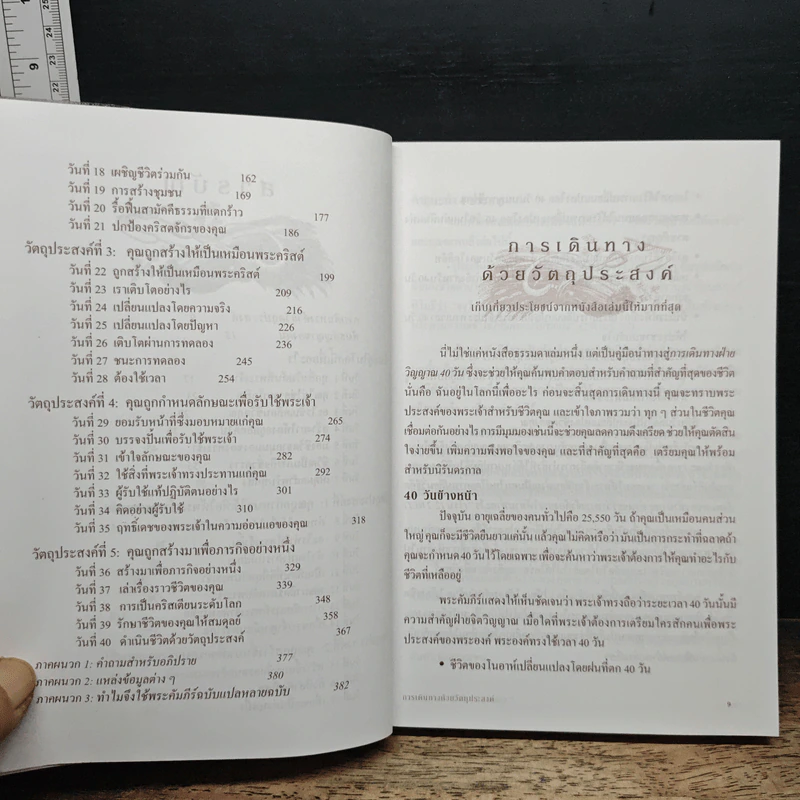 9
22
23
24
25
วันที่ 18 เผชิญชีวิตร่วมกัน 162
วันที่ 19 การสร้างชุมชน 169
วันที่ 20 รื้อฟื้นสามัคคีธรรมที่แตกร้าว 177
วันที่ 21 ปกป้องคริสตจักรของคุณ 186
วัตถุประสงค์ที่ 3: คุณถูกสร้างให้เป็นเหมือนพระคริสต์
วันที่ 22 ถูกสร้างให้เป็นเหมือนพระคริสต์ 199
วันที่ 23 เราเติบโตอย่างไร 209
วันที่ 24 เปลี่ยนแปลงโดยความจริง 216
วันที่ 25 เปลี่ยนแปลงโดยปัญหา 226
วันที่ 26 เติบโตผ่านการทดลอง 236
วันที่ 27 ชนะการทดลอง 245
วันที่ 28 ต้องใช้เวลา 254
วัตถุประสงค์ที่ 4: คุณถูกกำหนดลักษณะเพื่อรับใช้พระเจ้า
วันที่ 29 ยอมรับหน้าที่ซึ่งมอบหมายแก่คุณ 265
วันที่ 30 บรรจงปั้นเพื่อรับใช้พระเจ้า 274
วันที่ 31 เข้าใจลักษณะของคุณ 282
วันที่ 32 ใช้สิ่งที่พระเจ้าทรงประทานแก่คุณ 292
วันที่ 33 ผู้รับใช้แท้ปฏิบัติตนอย่างไร 301
วันที่ 34 คิดอย่างผู้รับใช้ 310
วันที่ 35 ฤทธิ์เดชของพระเจ้าในความอ่อนแอของคุณ 318
วัตถุประสงค์ที่ 5: คุณถูกสร้างมาเพื่อภารกิจอย่างหนึ่ง
วันที่ 36 สร้างมาเพื่อภารกิจอย่างหนึ่ง 329
วันที่ 37 เล่าเรื่องราวชีวิตของคุณ 339
วันที่ 38 การเป็นคริสเตียนระดับโลก 348
วันที่ 39 รักษาชีวิตของคุณให้สมดุลย์ 358
วันที่ 40 ดำเนินชีวิตด้วยวัตถุประสงค์ 367
ภาคผนวก 1: คำถามสำหรับอภิปราย 377
ภาคผนวก 2: แหล่งข้อมูลต่าง ๆ 380
ภาคผนวก 3: ทำไมจึงใช้พระคัมภีร์ฉบับแปลหลายฉบับ 382
การเดินทาง
ด้วยวัตถุประสงค์
เก็บเกี่ยวประโยชน์จากหนังสือเล่มนี้ให้มากที่สุด
นี่ไม่ใช่แค่หนังสือธรรมดาเล่มหนึ่ง แต่เป็นคู่มือนำทางสู่การเดินทางฝ่าย
วิญญาณ 40 วัน ซึ่งจะช่วยให้คุณค้นพบคำตอบสำหรับคำถามที่สำคัญที่สุดของชีวิต
นั่นคือ ฉันอยู่ในโลกนี้เพื่ออะไร ก่อนจะสิ้นสุดการเดินทางนี้ คุณจะทราบพระ
ประสงค์ของพระเจ้าสำหรับชีวิตคุณ และเข้าใจภาพรวมว่า ทุก ๆ ส่วนในชีวิตคุณ
เชื่อมต่อกันอย่างไร การมีมุมมองเช่นนี้จะช่วยคุณลดความตึงเครียด ช่วยให้คุณตัดสิน
ใจง่ายขึ้น เพิ่มความพึงพอใจของคุณ และที่สำคัญที่สุดคือ เตรียมคุณให้พร้อม
สำหรับนิรันดรกาล
40 วันข้างหน้า
ปัจจุบัน อายุเฉลี่ยของคนทั่วไปคือ 25,550 วัน ถ้าคุณเป็นเหมือนคนส่วน
ใหญ่ คุณก็จะมีชีวิตยืนยาวแค่นั้น แล้วคุณไม่คิดหรือว่า มันเป็นการกระทำที่ฉลาดถ้า
คุณจะกำหนด 40 วันไว้โดยเฉพาะ เพื่อจะค้นหาว่าพระเจ้าต้องการให้คุณทำอะไรกับ
ชีวิตที่เหลืออยู่
พระคัมภีร์แสดงให้เห็นชัดเจนว่า พระเจ้าทรงถือว่าระยะเวลา 40 วันนั้นมี
ความสำคัญฝ่ายจิตวิญญาณ เมื่อใดที่พระเจ้าต้องการเตรียมใครสักคนเพื่อพระ
ประสงค์ของพระองค์ พระองค์ทรงใช้เวลา 40 วัน
• ชีวิตของโนอาห์เปลี่ยนแปลงโดยฝนที่ตก 40 วัน
การเดินทางด้วยวัตถุประสงค์ 9